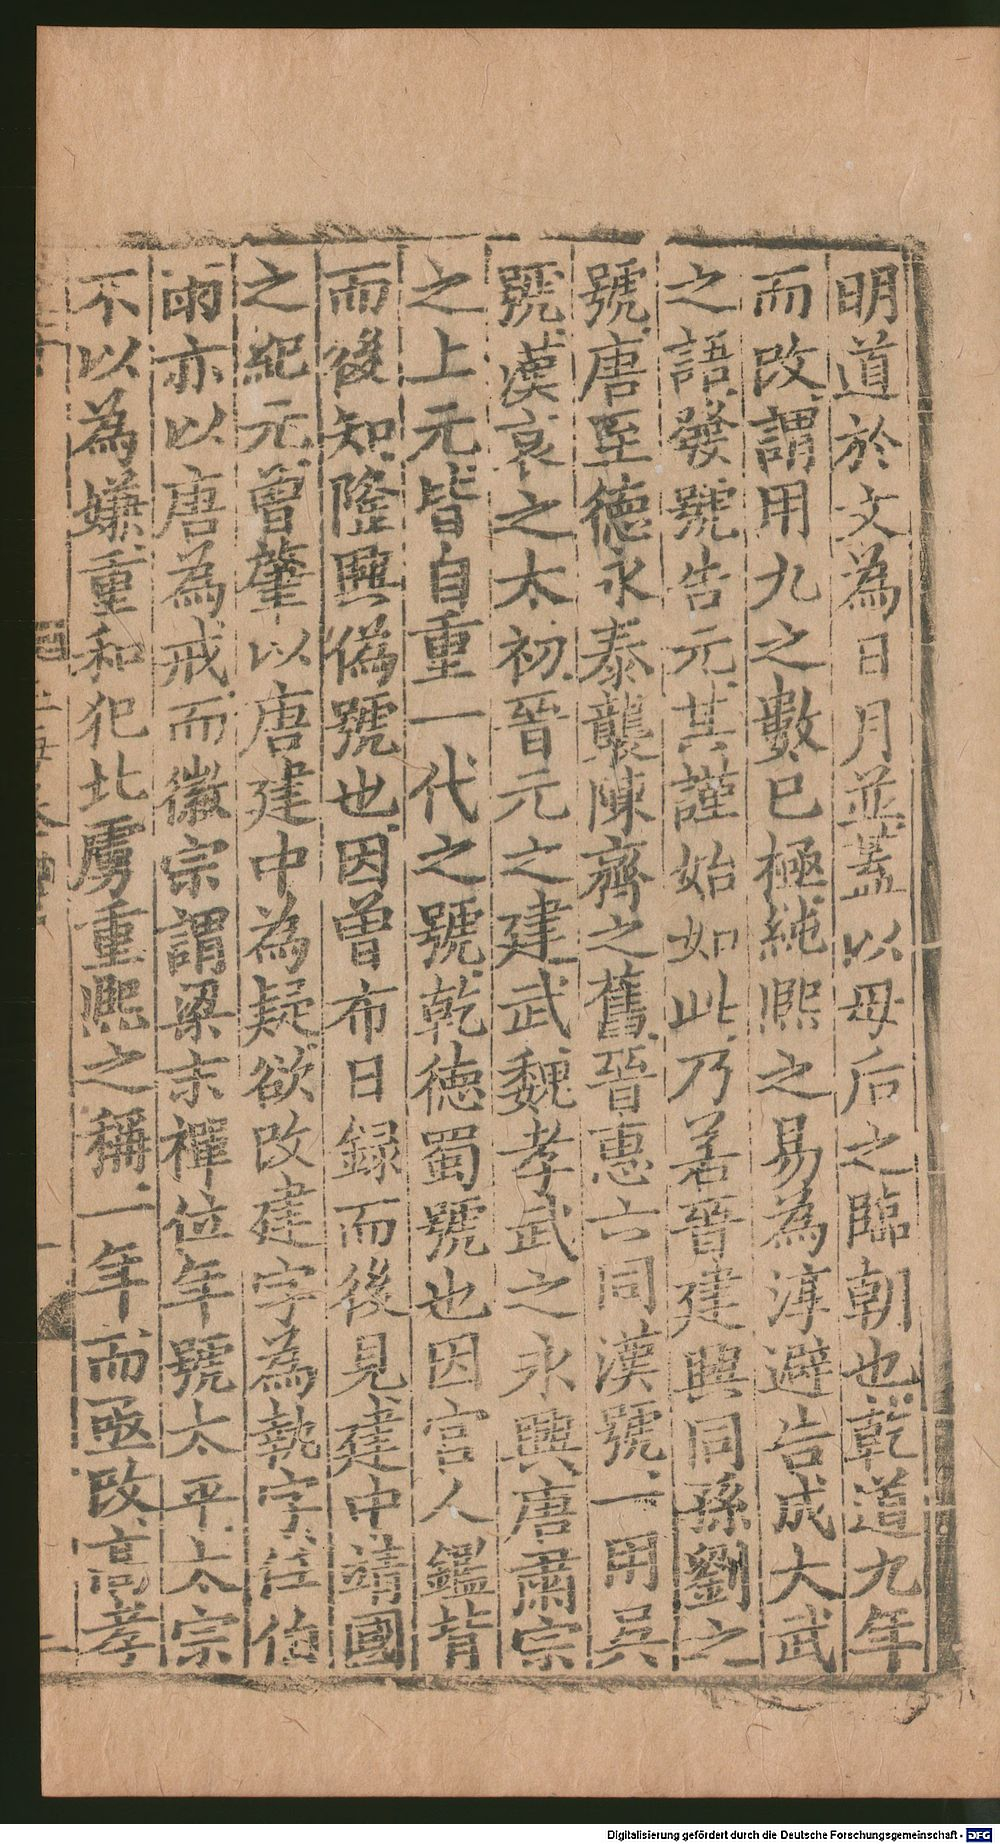 明道於文為日月並蓋以母后之臨朝也乾道九年
而改謂用九之數已極純熈之易為淳避告成大武
之語發號告元其謹始如此乃若晉建興同孫劉之
號唐至德永泰襲陳齊之舊晉惠六同漢號一用吳
號漢哀之太初晉元之建武魏孝武之永興唐肅宗
之上元皆自重一代之號乾德蜀號也因宫人鑑背
而後知隆興偽號也因曾布日録而後見建中靖國
之紀元曾肇以唐建中為疑欲改建字為執字任伯
雨亦以唐為戒而徽宗謂梁末禪位年號太平太宗
不以為嫌重和犯北虜重熈之稱一年而亟改高孝
Digitalisierung gefördert durch die Deutsche Forschungsgemeinschaft - DFG